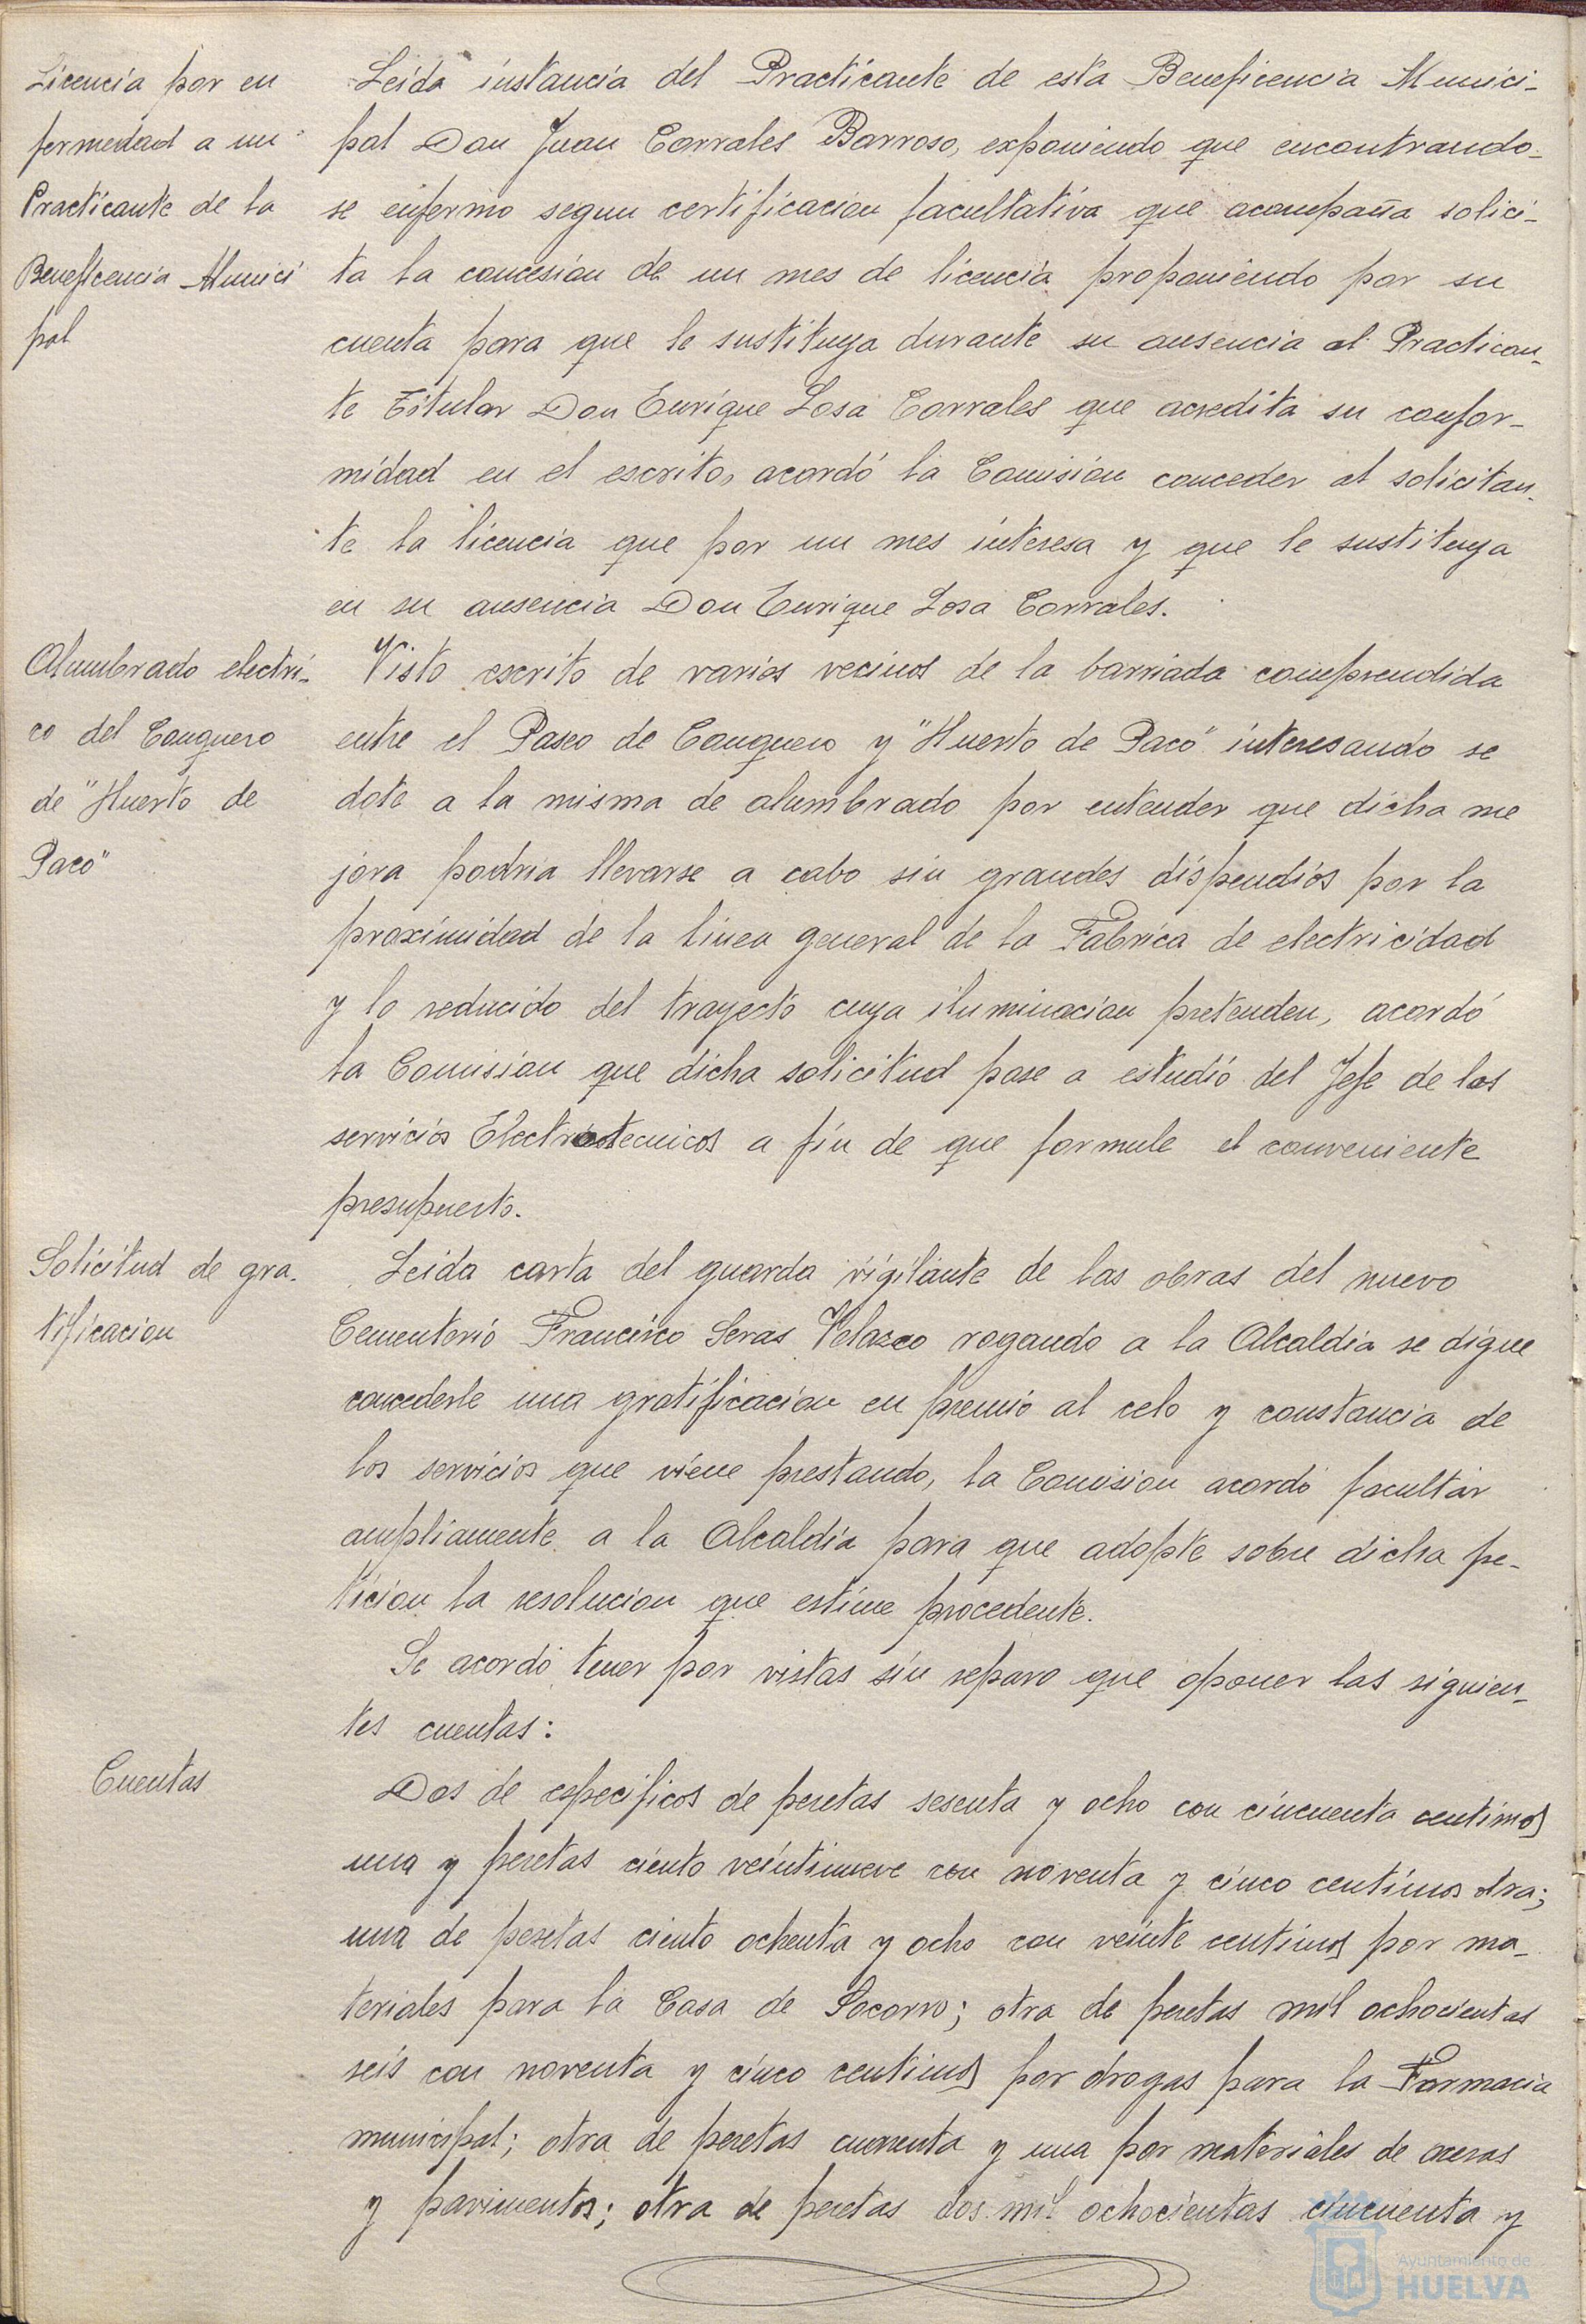 Licencia por en
fermedad a un
Practicante de la
Beneficencia Munici
pal
Leida instancia del Practicante de esta Beneficencia Munici-
pal Don Juan Corrales Barroso, exponiendo que encontrando-
se enfermo segun certificacion facultativa que acompaña solici-
ta la concesión de un mes de licencia proponiendo por su
cuenta para que le sustituya durante su ausencia al Practican-
te Titular Don Enrique Losa Corrales que acredita su confor-
midad en el escrito, acordó la Comisión conceder al solicitan-
te la licencia que por un mes interesa y que le sustituya
en su ausencia Don Enrique Losa Corrales.
Alumbrado electri-
co del Conquero
de "Huerto de
Paco"
Visto escrito de varios vecinos de la barriada comprendida
entre el Paseo de Conquero y "Huerto de Paco" interesando se
dote a la misma de alumbrado por entender que dicha me
jora podria llevarse a cabo sin grandes dispendios por la
proximidad de la linea general de la Fabrica de electricidad
y lo reducido del trayecto cuya iluminacion pretenden, acordó
la Comision que dicha solicitud pase a estudio del Jefe de los
servicios Electrotecnicos a fin de que formule el conveniente
presupuesto.
Solicitud de gra-
tificacion
Leida carta del guarda vigilante de las obras del nuevo
Cementerio Francisco Seras Velazco rogando a la Alcaldia se digne
concederle una gratificacion en premio al celo y constancia de
los servicios que viene prestando, la Comision acordó facultar
ampliamente a la Alcaldía para que adopte sobre dicha pe-
ticion la resolucion que estime procedente.
Se acordó tener por vistas sin reparo que oponer las siguien-
tes cuentas:
Cuentas
Dos de especificos de pesetas sesenta y ocho con cincuenta centimos
una y pesetas ciento veintinueve con noventa y cinco centimos otra;
una de pesetas ciento ochenta y ocho con veinte centimos por ma-
teriales para la Casa de Socorro; otra de pesetas mil ochocientas
seis con noventa y cinco centimos por drogas para la Farmacia
municipal; otra de pesetas cuarenta y una por materiales de aceras
y pavimentos; otra de pesetas dos mil ochocientas cincuenta y
Ayuntamiento de
HUELVA